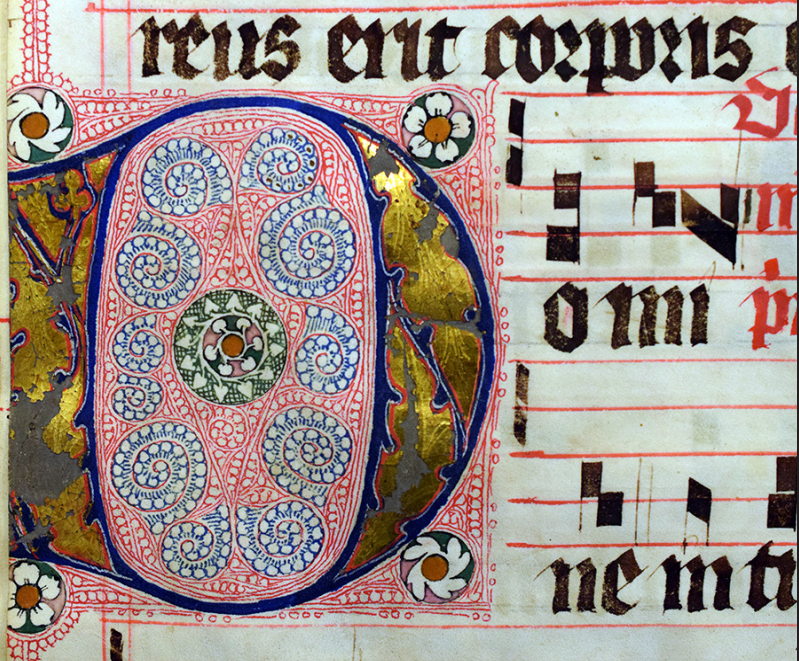 reus erit corporis
Do mi
ne in